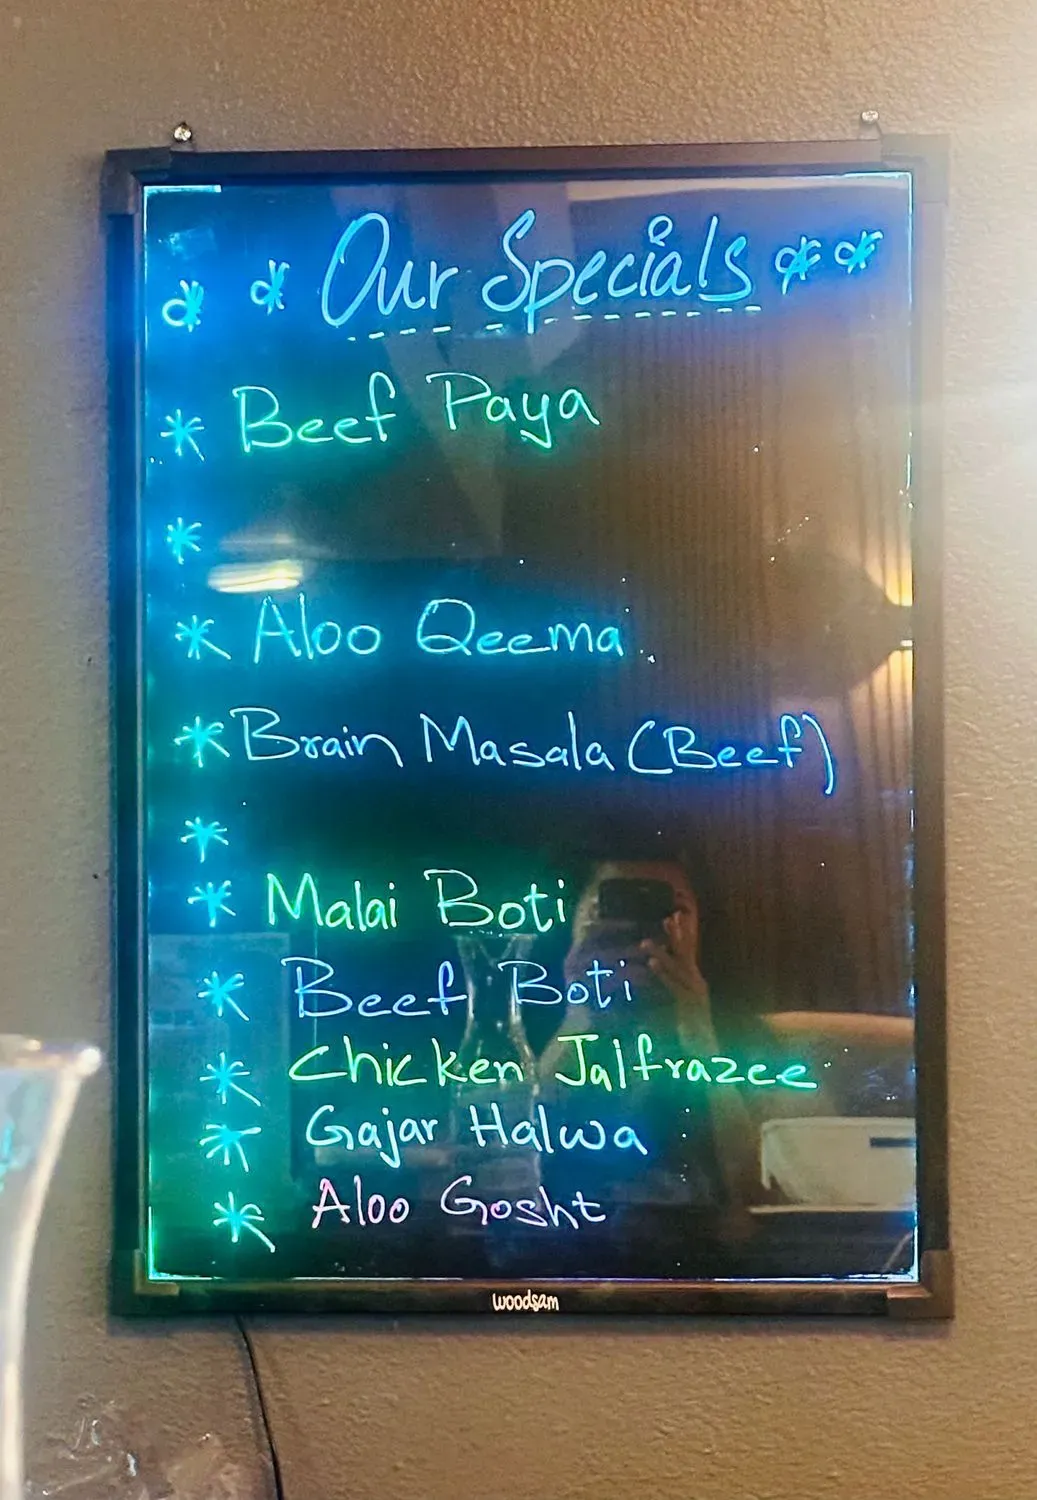 Our Specials
* Beef Paya
*
* Aloo Qeema
* Brain Masala (Beef)
*
* Malai Boti
* Beef Boti
* Chicken Jalfrazee
* Gajar Halwa
* Aloo Gosht
woodsam